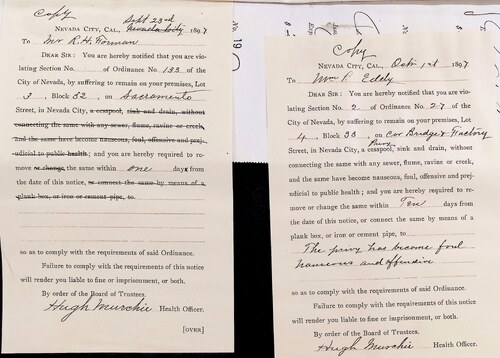 Copy
Sept 23rd
NEVADA CITY, CAL., Nevada City 1897
To Mr R. H. Forman
DEAR SIR: You are hereby notified that you are vio-
lating Section No. of Ordinance No. 133 of the
City of Nevada, by suffering to remain on your premises, Lot
3, Block 52, on Sacramento
Street, in Nevada City, a cesspool, sink and drain, without
connecting the same with any sewer, flume, ravine or creek,
and the same have become nauseous, foul, offensive and prej-
udicial to public health; and you are hereby required to re-
move or change the same within one days from
the date of this notice, or connect the same by means of a
plank box, or iron or cement pipe, to
so as to comply with the requirements of said Ordinance.
Failure to comply with the requirements of this notice
will render you liable to fine or imprisonment, or both.
By order of the Board of Trustees.
Hugh Murchie Health Officer.
[OVER]
No.
19
Copy
NEVADA CITY, CAL., Oct. 1st 1897
To Wm P. Eddy
DEAR SIR: You are hereby notified that you are vio-
lating Section No. 2 of Ordinance No. 27 of the
City of Nevada, by suffering to remain on your premises, Lot
4, Block 33, on Cor Bridge & Factory
Privy
Street, in Nevada City, a cesspool, sink and drain, without
connecting the same with any sewer, flume, ravine or creek,
and the same have become nauseous, foul, offensive and prej-
udicial to public health; and you are hereby required to re-
move or change the same within Ten days from
the date of this notice, or connect the same by means of a
plank box, or iron or cement pipe, to
The privy has become foul
nauseous and offensive
so as to comply with the requirements of said Ordinance.
Failure to comply with the requirements of this notice
will render you liable to fine or imprisonment, or both.
By order of the Board of Trustees.
Hugh Murchie Health Officer.